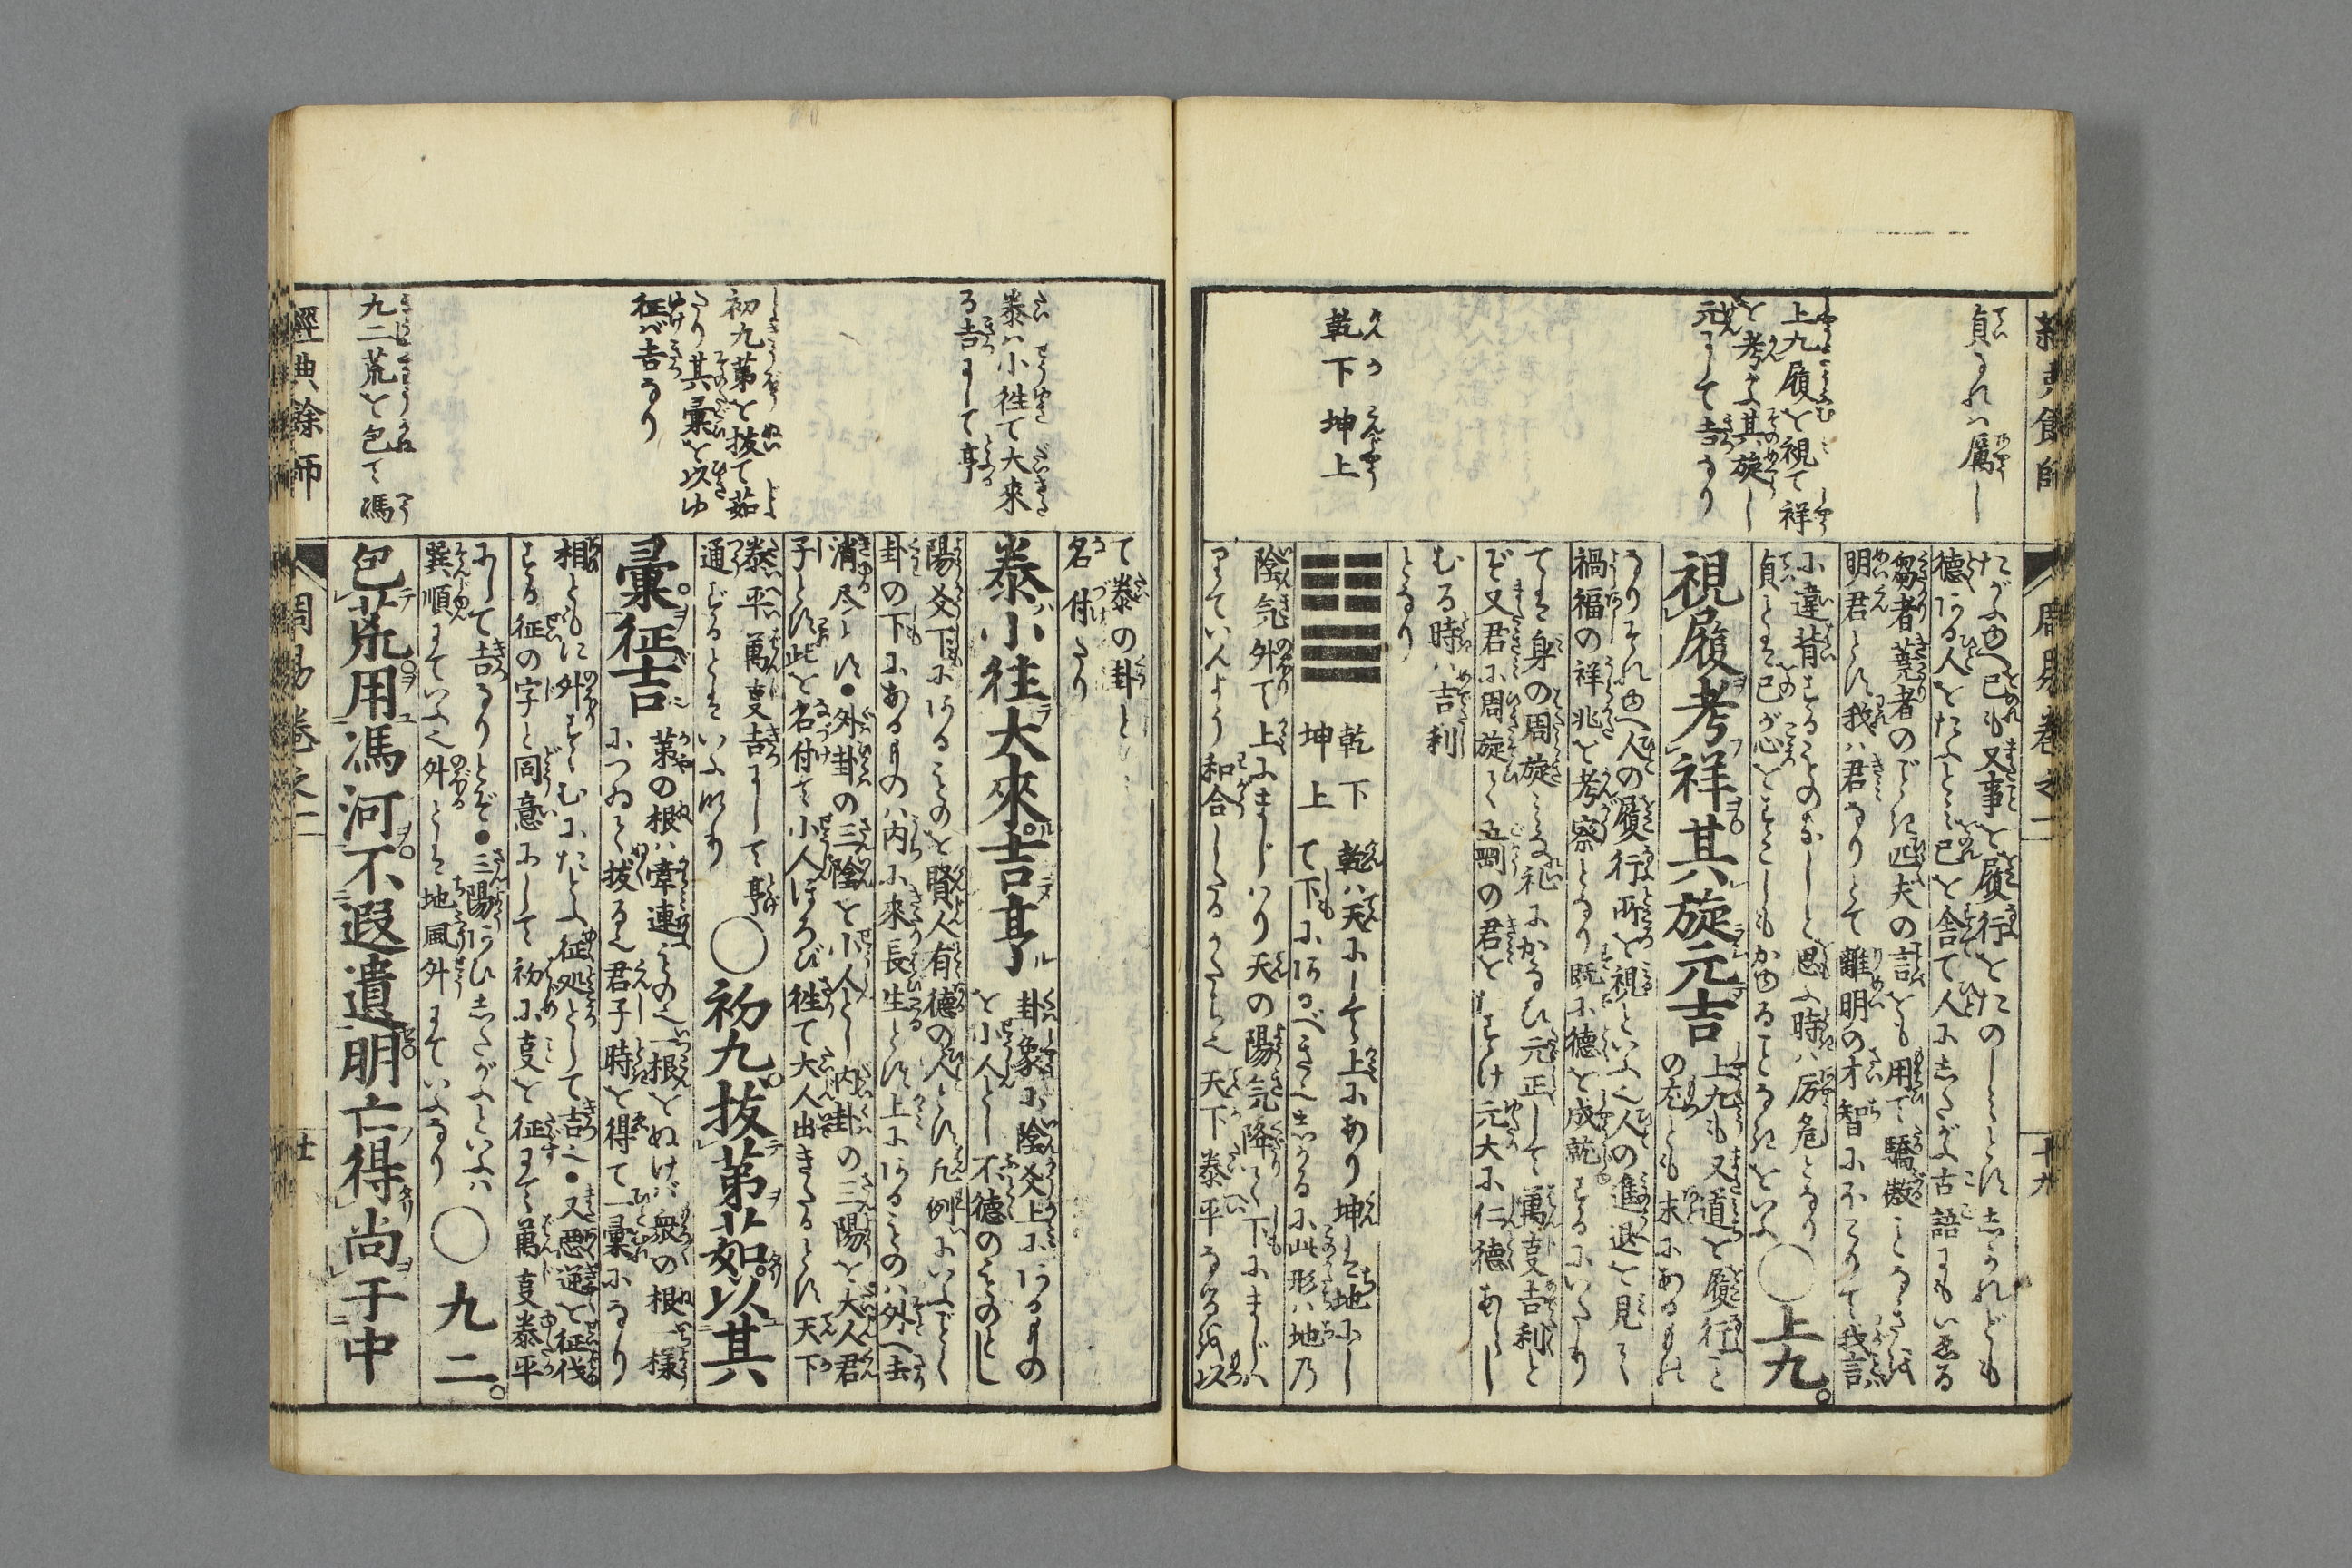 貞なれハ厲し
上九履を視て祥
を考ふ其旋し
元にして吉なり
乾下坤上
たがふ由へ已も又事を履行をたのしとす志かれども
徳ある人をたふとミ已を舎て人に志たがふ古語にもいへる
芻者蕘者のごとく匹夫の言をも用て驕傲ことなきハ
明君とす我ハ君なりとて離明の才智にほこりて我言
に違背するものなしと思ふ時ハ厉危となり〇上九
貞とは已が心をすこしもかゆることなきをいふ
視履考祥其旋元吉
上九も又道を履行こ
の左とも末にあるもの
なりそれ由へ人の履行所を視といふ人の進退を見て
禍福の祥兆を考察となり既に徳を成就するにいたり
ては身の周旋ミな礼にかなひ元正して萬事吉利と
ぞ又君に周旋て五剛の君をたすけ元大に仁徳あらし
むる時ハ吉利
となり
乾下
坤上
乾ハ天にして上にあり坤は地にし
て下にあるべきを志かるに此形ハ地乃
陰気外て上にまじハり天の陽気降て下にまじハ
りていんよう和合したるかたち也天下泰平なるを以
て泰の卦と
名付たり
泰ハ小往て大來
る吉にして亨
初九茅を抜て茹
たり其彙を以ゆ
征バ吉なり
九二荒を包て馮
泰小往大來吉亨
卦象に陰爻上にあるもの
を小人とし不徳のものとし
陽爻下にあるものを賢人有徳の人とす凡例にいふごとく
卦の下にあるものハ内に來長生とす上にあるものハ外へ去
消尽とす●外卦の三陰を小人とし内卦の三陽を大人君
子とす此を名付て小人ほろび往て大人出きたるとす天下
泰平萬事吉にして亨
通ずるとはいふ也〇初九抜茅茹以其
彙征吉
茅の根ハ牽連もの也一根をぬけバ衆の根一様
につゐて抜る也君子時を得て一彙になり
相ともに外すすむにたとふ征処として吉也●又悪逆を征伐
する征の字と同意にして初に事を征にて萬事泰平
にして吉なりとぞ●三陽あひ志たがふといふハ
巽順にていふ也外とは地風外にていふなり〇九二
包荒用馮河不遐遺朋亡得尚于中
經典餘師
周易巻之二